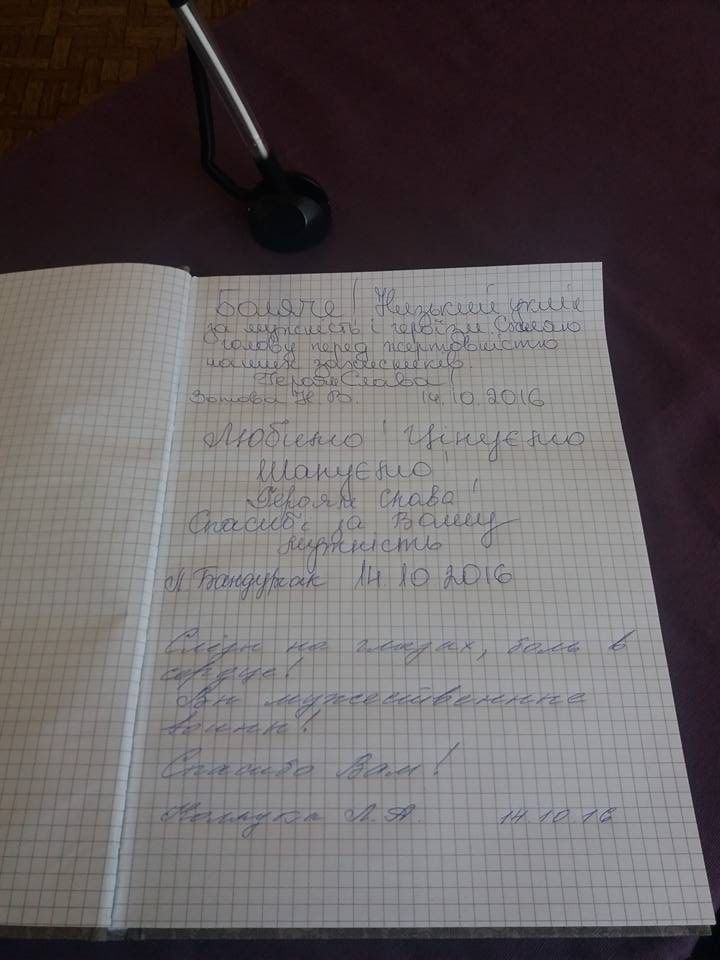 Боляче! Низький уклін
за мужність і героїзм. Схиляю
голову перед жертовністю
наших захисників.
Героям Слава!
Зотова Н В. 14.10.2016
Любимо! Цінуємо
Шануємо!
Героям слава!
Спасибі за Вашу
мужність
Л Бандурак 14.10 2016
на глазах, боль в
сердце!
Вы мужественные
воины!
Спасибо Вам!
Л.А. 14.10.16